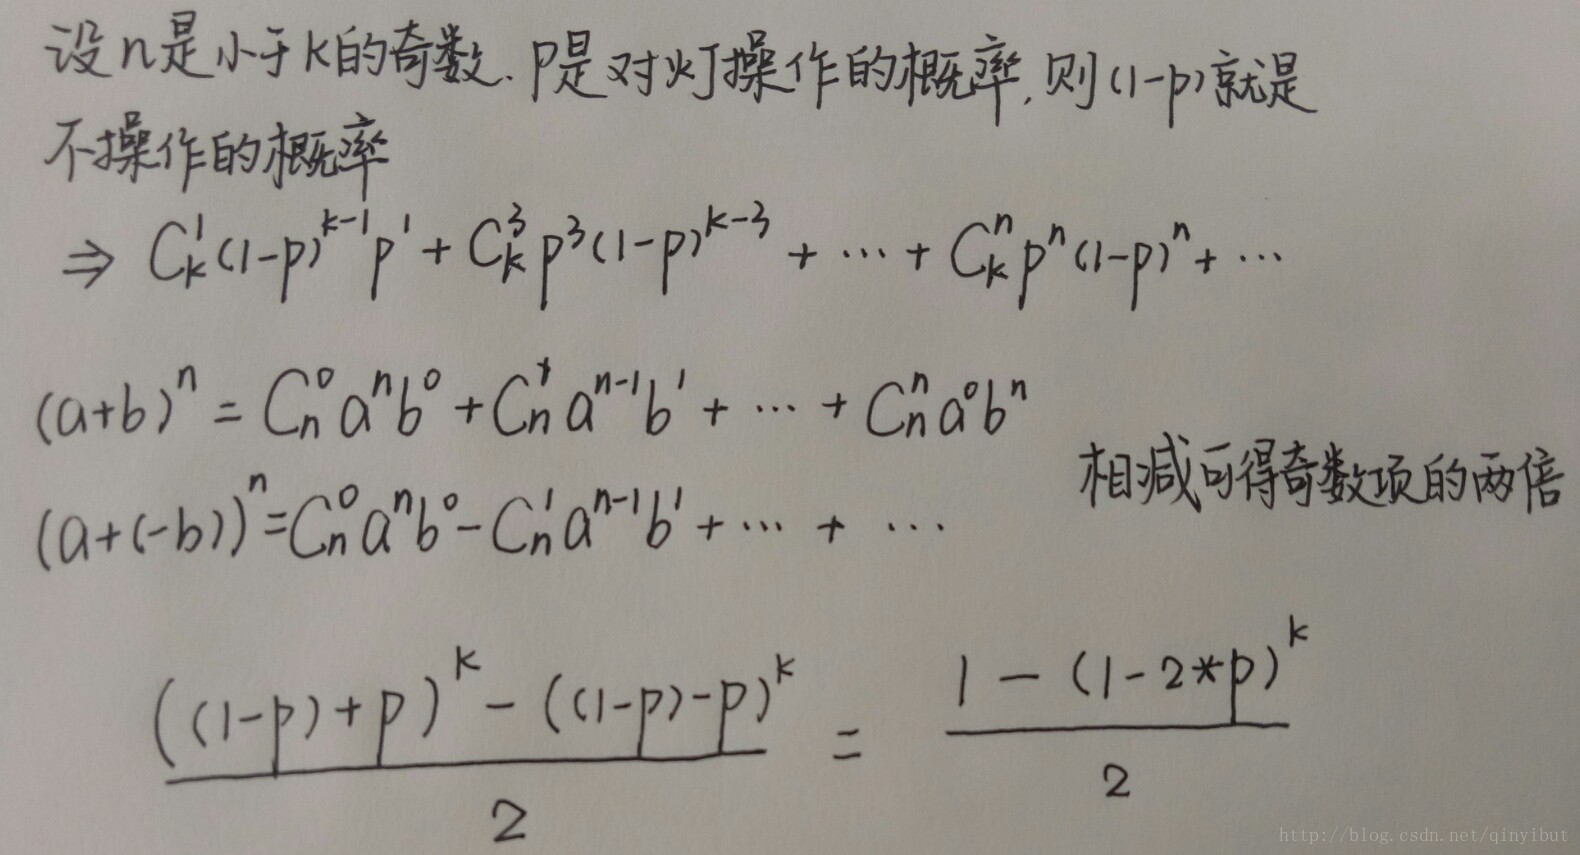 设n是小于k的奇数. p是对灯操作的概率, 则(1-p)就是
不操作的概率
⇒ C_k^1 (1-p)^{k-1} p^1 + C_k^3 p^3 (1-p)^{k-3} + ··· + C_k^n p^n (1-p)^n + ···
(a+b)^n = C_n^0 a^n b^0 + C_n^1 a^{n-1} b^1 + ··· + C_n^n a^0 b^n
相减可得奇数项的两倍
(a+(-b))^n = C_n^0 a^n b^0 - C_n^1 a^{n-1} b^1 + ··· + ···
\frac{((1-p)+p)^k - ((1-p)-p)^k}{2} = \frac{1-(1-2*p)^k}{2}
http://blog.csdn.net/qinyibut